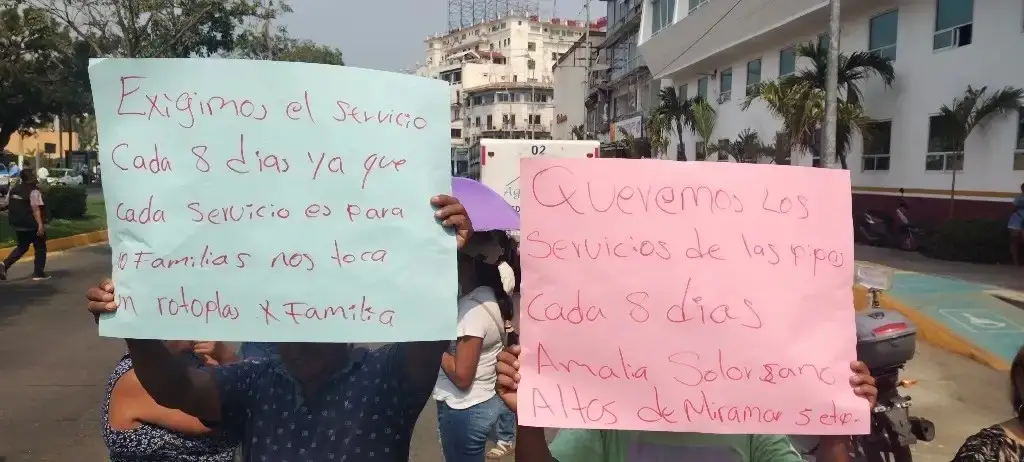 Exigimos el servicio
Cada 8 dias ya que
cada servicio es para
10 Familias nos toca
un rotoplas x Familia
02
Ag
Queremos Los
Servicios de las pipas
Cada 8 dias
Amalia Solorzano
Altos de Miramar 5 etr.